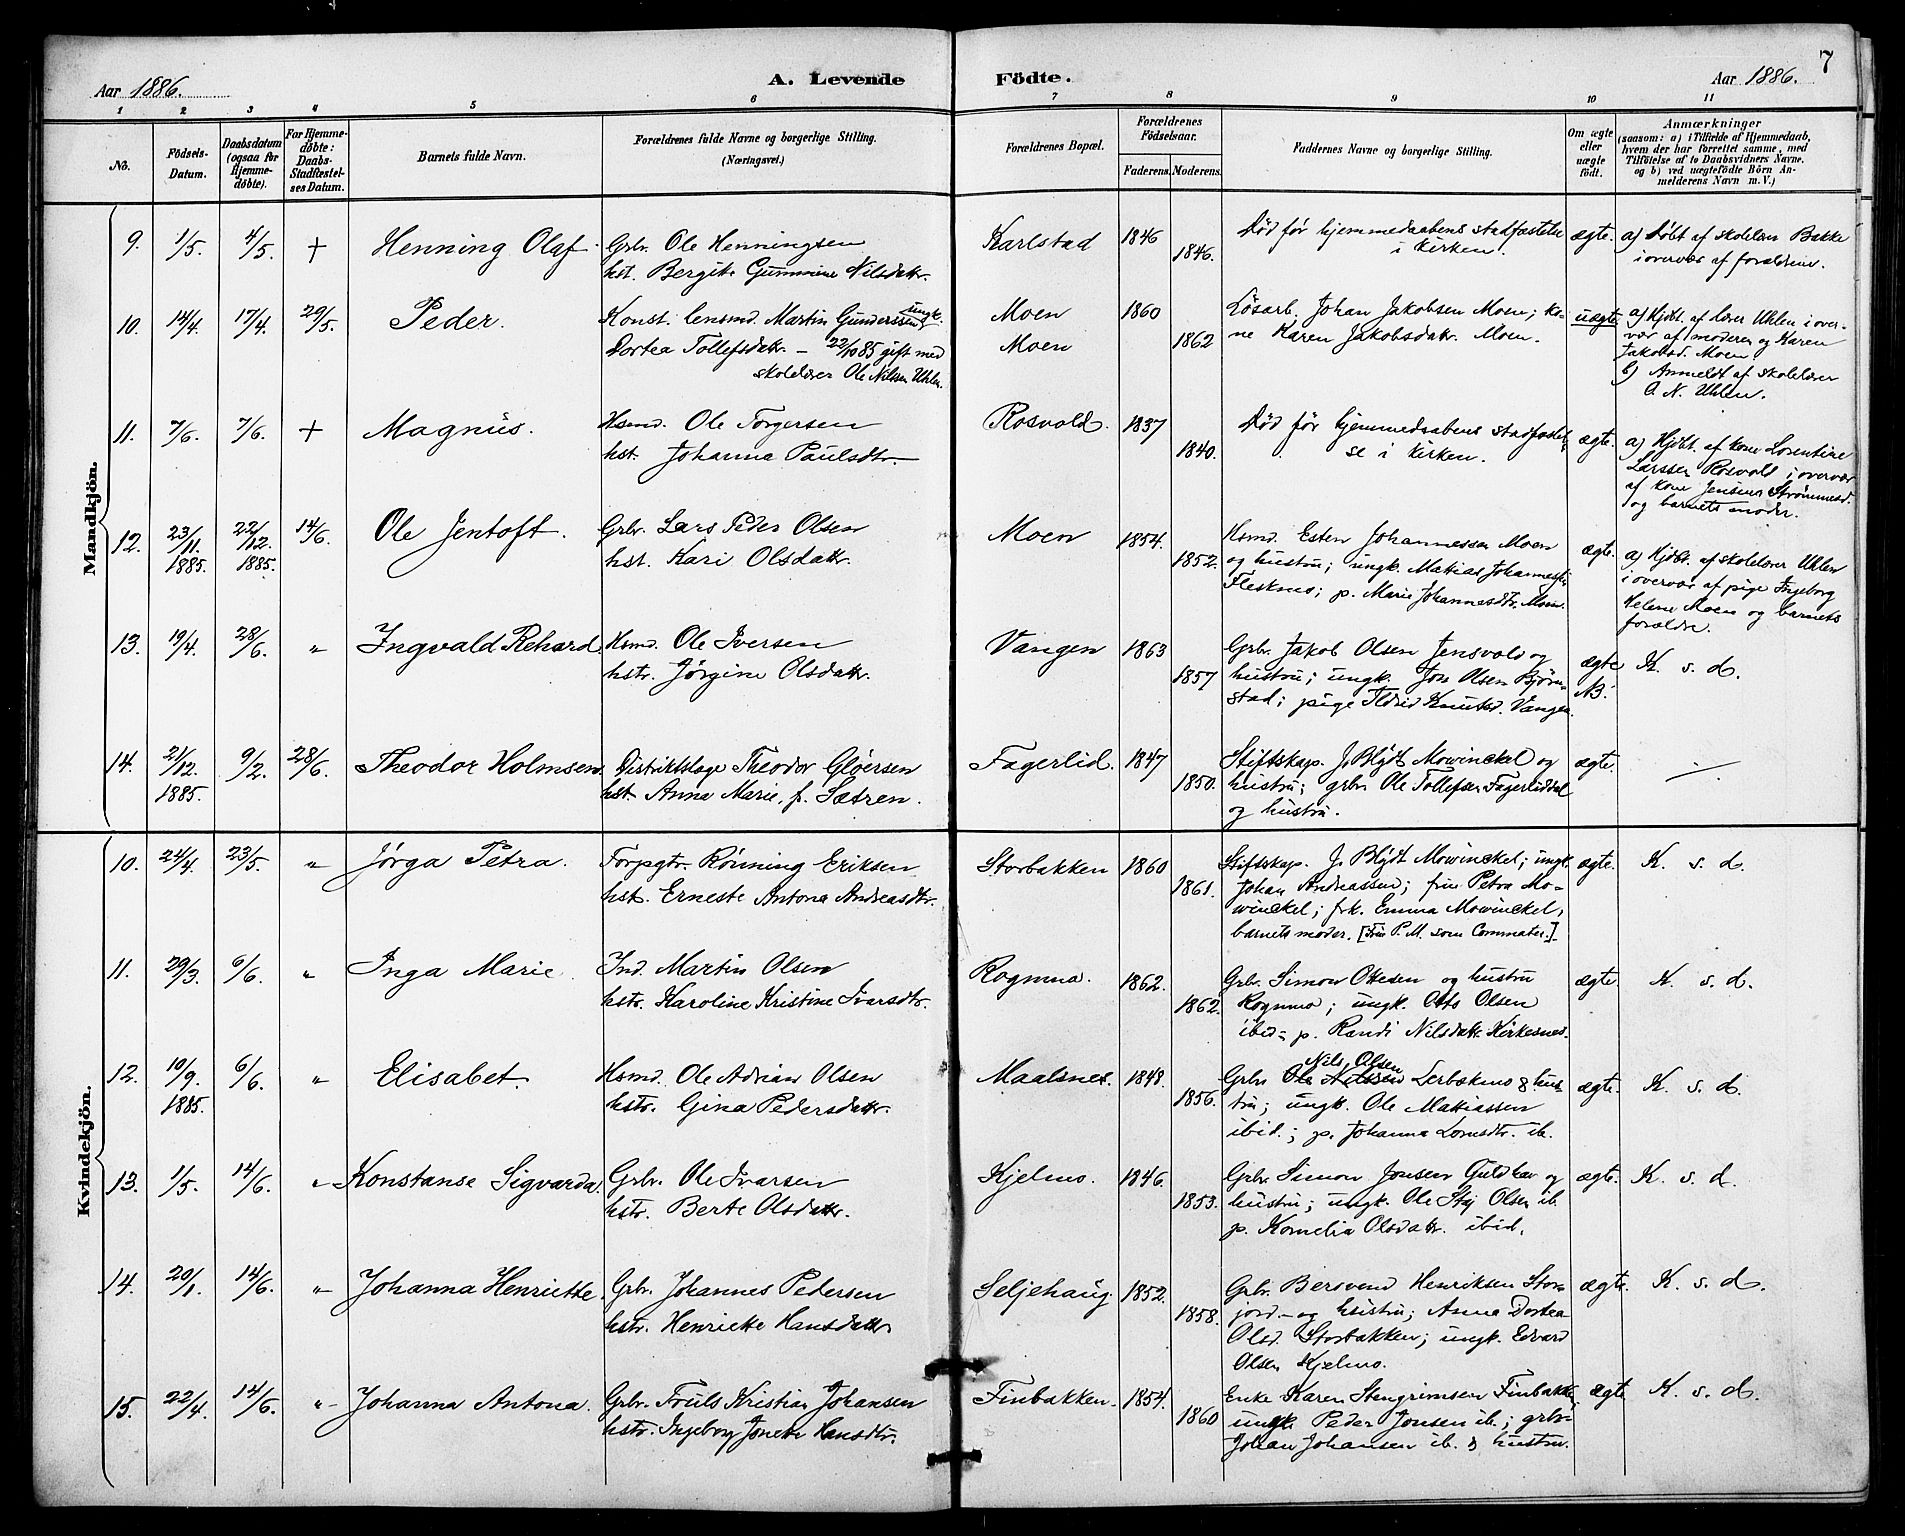 7
Aar 1886.
A. Levende
Födte.
Aar 1886.
1 2 3 4 5 6 7 8 9 10 11
No.
Födsels-
Datum.
Daabsdatum
(ogsaa for
Hjemme-
døbte).
For Hjemme-
døbte:
Daabs-
Stadfæstel-
ses Datum.
Barnets fulde Navn.
Forældrenes fulde Navne og borgerlige Stilling.
(Næringsvei.)
Forældrenes Bopæl.
Forældrenes
Födselsaar.
Faderens. Moderens.
Faddernes Navne og borgerlige Stilling.
Om ægte
eller
uægte
födt.
Anmærkninger
(saasom: a) i Tilfælde af Hjemmedaab,
hvem der har forrettet samme, med
Tilföielse af to Daabsvidners Navne.
og b) ved uægtefödte Börn An-
melderens Navn m. V.)
Mandkjön.
9. 1/5. 4/5. + Henning Olaf.
Grbr. Ole Henningsen
hst. Bergite Gunnerine Nilsdattr.
Karlstad 1846 1846.
Død før hjemmedaabens stadfæstelse
i kirken.
ægte.
a) Døbt af skolelærer Bakke
i overvær af forældrene.
10. 14/4. 17/4. 29/5. Peder.
Konst. lensmd. Martin Gunderssen ungk.
Dortea Tollefsdattr. – 22/10 85 gift med
skolelærer Ole Nilssen Uhlen.
Moen 1860
Moen 1862
Løsarb. Johan Jakobsen Moen; ko-
ne Karen Jakobsdatr. Moen.
uægte.
a) Hjdbt. af lærer Uhlen i over-
vær af moderen og Karen
Jakobsd. Moen
b) Anmeldt af skolelærer
O. N. Uhlen.
11. 7/6. 7/6. + Magnus.
Hsmd. Ole Torgersen
hst. Johanna Paulsdtr.
Rosvold. 1837 1840.
Død før hjemmedaabens stadfæstel-
se i kirken.
ægte.
a) Hjdbt. af kone Lorentine
Larssen Rosvold i overvær
af kone Jensine Strømmesd.
og barnets moder.
12. 23/11. 1885. 22/12. 1885. 14/6. Ole Jentoft.
Grbr. Lars Peder Olsen
hst. Kari Olsdattr.
Moen 1854. 1852.
Hsmd. Esten Johannessen Moen
og hustru; ungk. Mattias Johannessen
Fleskmo; p. Marie Johannesdtr. Moen.
ægte.
a) Hjdbt. af skolelærer Uhlen
i overvær af pige Ingeborg
Helene Moen og barnets
forældre.
13. 19/4. 28/6. " Ingvald Rehard.
Hsmd. Ole Iversen
hstr. Jørgine Olsdattr.
Vangen 1863 1857
Grbr. Jakob Olsen Jensvold og
hustru; ungk. Jon Olsen Bjørn-
stad; pige Ildrid Knutsd. Vangen.
ægte
NB.
K. s. d.
14. 21/12. 1885. 9/2. 28/6. Theodor Holmsen.
Distriktslæge Theodor Gløersen
hst. Anna Marie, f. Sætren.
Fagerlid. 1847 1850.
Stiftskap. J. Blydt Mowinckel og
hustru; grbr. Ole Tollefsen Fagerliddal
og hustru.
ægte.
Kvindekjön.
10. 24/4. 23/5. " Jørga Petra.
Forpgtr. Rønning Eriksen
hst. Erneste Antona Andreasdtr.
Storbakken 1860 1861.
Stiftskap. J. Blydt Mowinckel; ungk.
Johan Andreassen; fru Petra Mo-
winckel; frk. Emma Mowinckel,
barnets moder. [Fru P. M. som Commater.]
ægte.
K. s. d.
11. 29/3. 6/6. " Inga Marie.
Ind. Martin Olsen
hstr. Karoline Kristine Ivarsdtr.
Rogmo. 1862. 1862.
Grbr. Simon Ottesen og hustru
Rognmo; ungk. Otto Olsen
ibid – p. Randi Nilsdattr. Kirkesnes.
ægte.
K. s. d.
12. 10/9. 1885. 6/6. " Elisabet.
Hsmd. Ole Adrian Olsen
hstr. Gina Pedersdattr.
Maalsnes. 1848. 1856.
Nils Olsen
Grbr Ole Nilssen Lerbækmo & hus-
tru; ungk. Ole Mattiassen
ibid.; p. Johanna Lornsdtr. ib.
ægte.
K. s. d.
13. 1/5. 14/6. " Konstanse Sigvarda.
Grbr. Ole Ivarsen
hstr. Berte Olsdattr.
Kjelmo. 1846. 1853.
Grbr. Simon Jonsen Guldhav og
hustru; ungk. Ole Stej Olsen ib.
p. Kornelia Olsdattr. ibid.
ægte.
K. s. d.
14. 20/1. 14/6. " Johanna Henriette.
Grbr. Johannes Pedersen
hstr. Henriette Hansdattr.
Seljehaug 1852. 1858.
Grbr. Bersvend Henriksen Stor-
jord – og hustru; Anna Dortea
Olsd. Storbakken; ungk. Edvard
Olsen Kjelmo.
ægte.
K. s. d.
15. 22/4. 14/6. " Johanna Antona.
Grbr. Truls Kristian Johansen
hstr. Ingeborg Jonette Hansdtr.
Finbakken. 1854. 1860
Enke Karen Stengrimsen Finbakke,
ungk. Peder Jonsen ib.; grbr.
Johan Johansen ib. & hustru.
ægte
K. s. d.